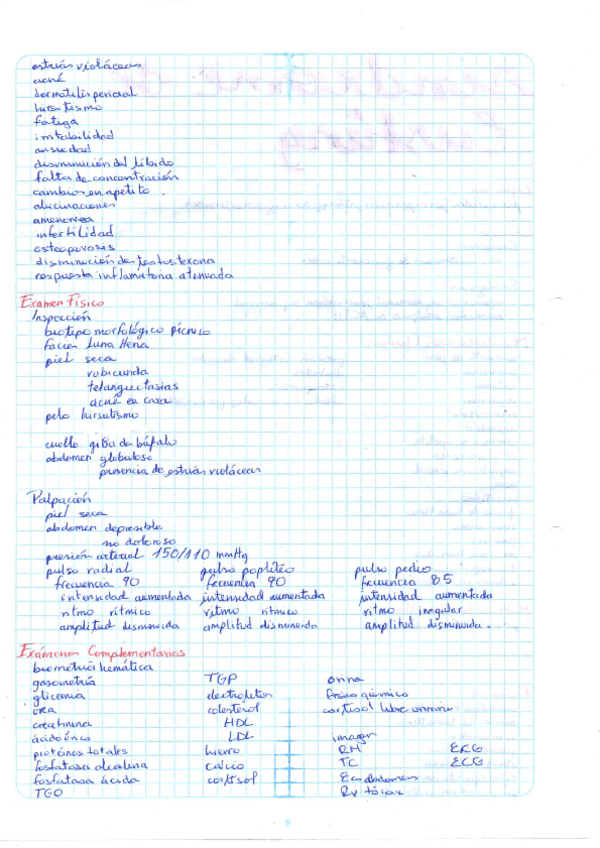 estrías violáceas
acné
dermatitis perioral
hirsutismo
fatiga
irritabilidad
ansiedad
disminución del líbido
falta de concentración
cambios en apetito.
alucinaciones
amenorrea
infertilidad
osteoporosis
disminución de testosterona
respuesta inflamatoria atenuada
Examen Físico
Inspección
biotipo morfológico pícnico
facies luna llena
piel seca
rubicunda
telangiectasias
acné en cara
pelo hirsutismo
cuello giba de búfalo
abdomen globuloso
presencia de estrías violáceas
Palpación
piel seca
abdomen depresible
no doloroso
presión arterial 150/110 mmHg
pulso radial pulso poplíteo pulso pedio
frecuencia 90 frecuencia 90 frecuencia 85
intensidad aumentada intensidad aumentada intensidad aumentada
ritmo rítmico ritmo rítmico ritmo irregular
amplitud disminuida amplitud disminuida amplitud disminuida.
Exámenes Complementarios
biometría hemática
gasometría TGP orina
glicemia electrolitos físico químico
urea colesterol cortisol libre
creatinina HDL
ácido úrico LDL imagen
proteínas totales hierro RM EKG
fosfatasa alcalina calcio TC ECG
fosfatasa ácida cortisol Eco abdomen
TGO Rx tórax